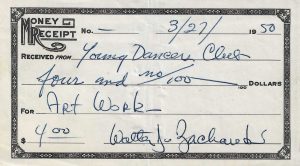 MONEY RECEIPT No. — 3/27/ 1950
RECEIVED FROM Young Dancer Club
four and no/100 DOLLARS
FOR Art Work
$ 4.00 Walter J.